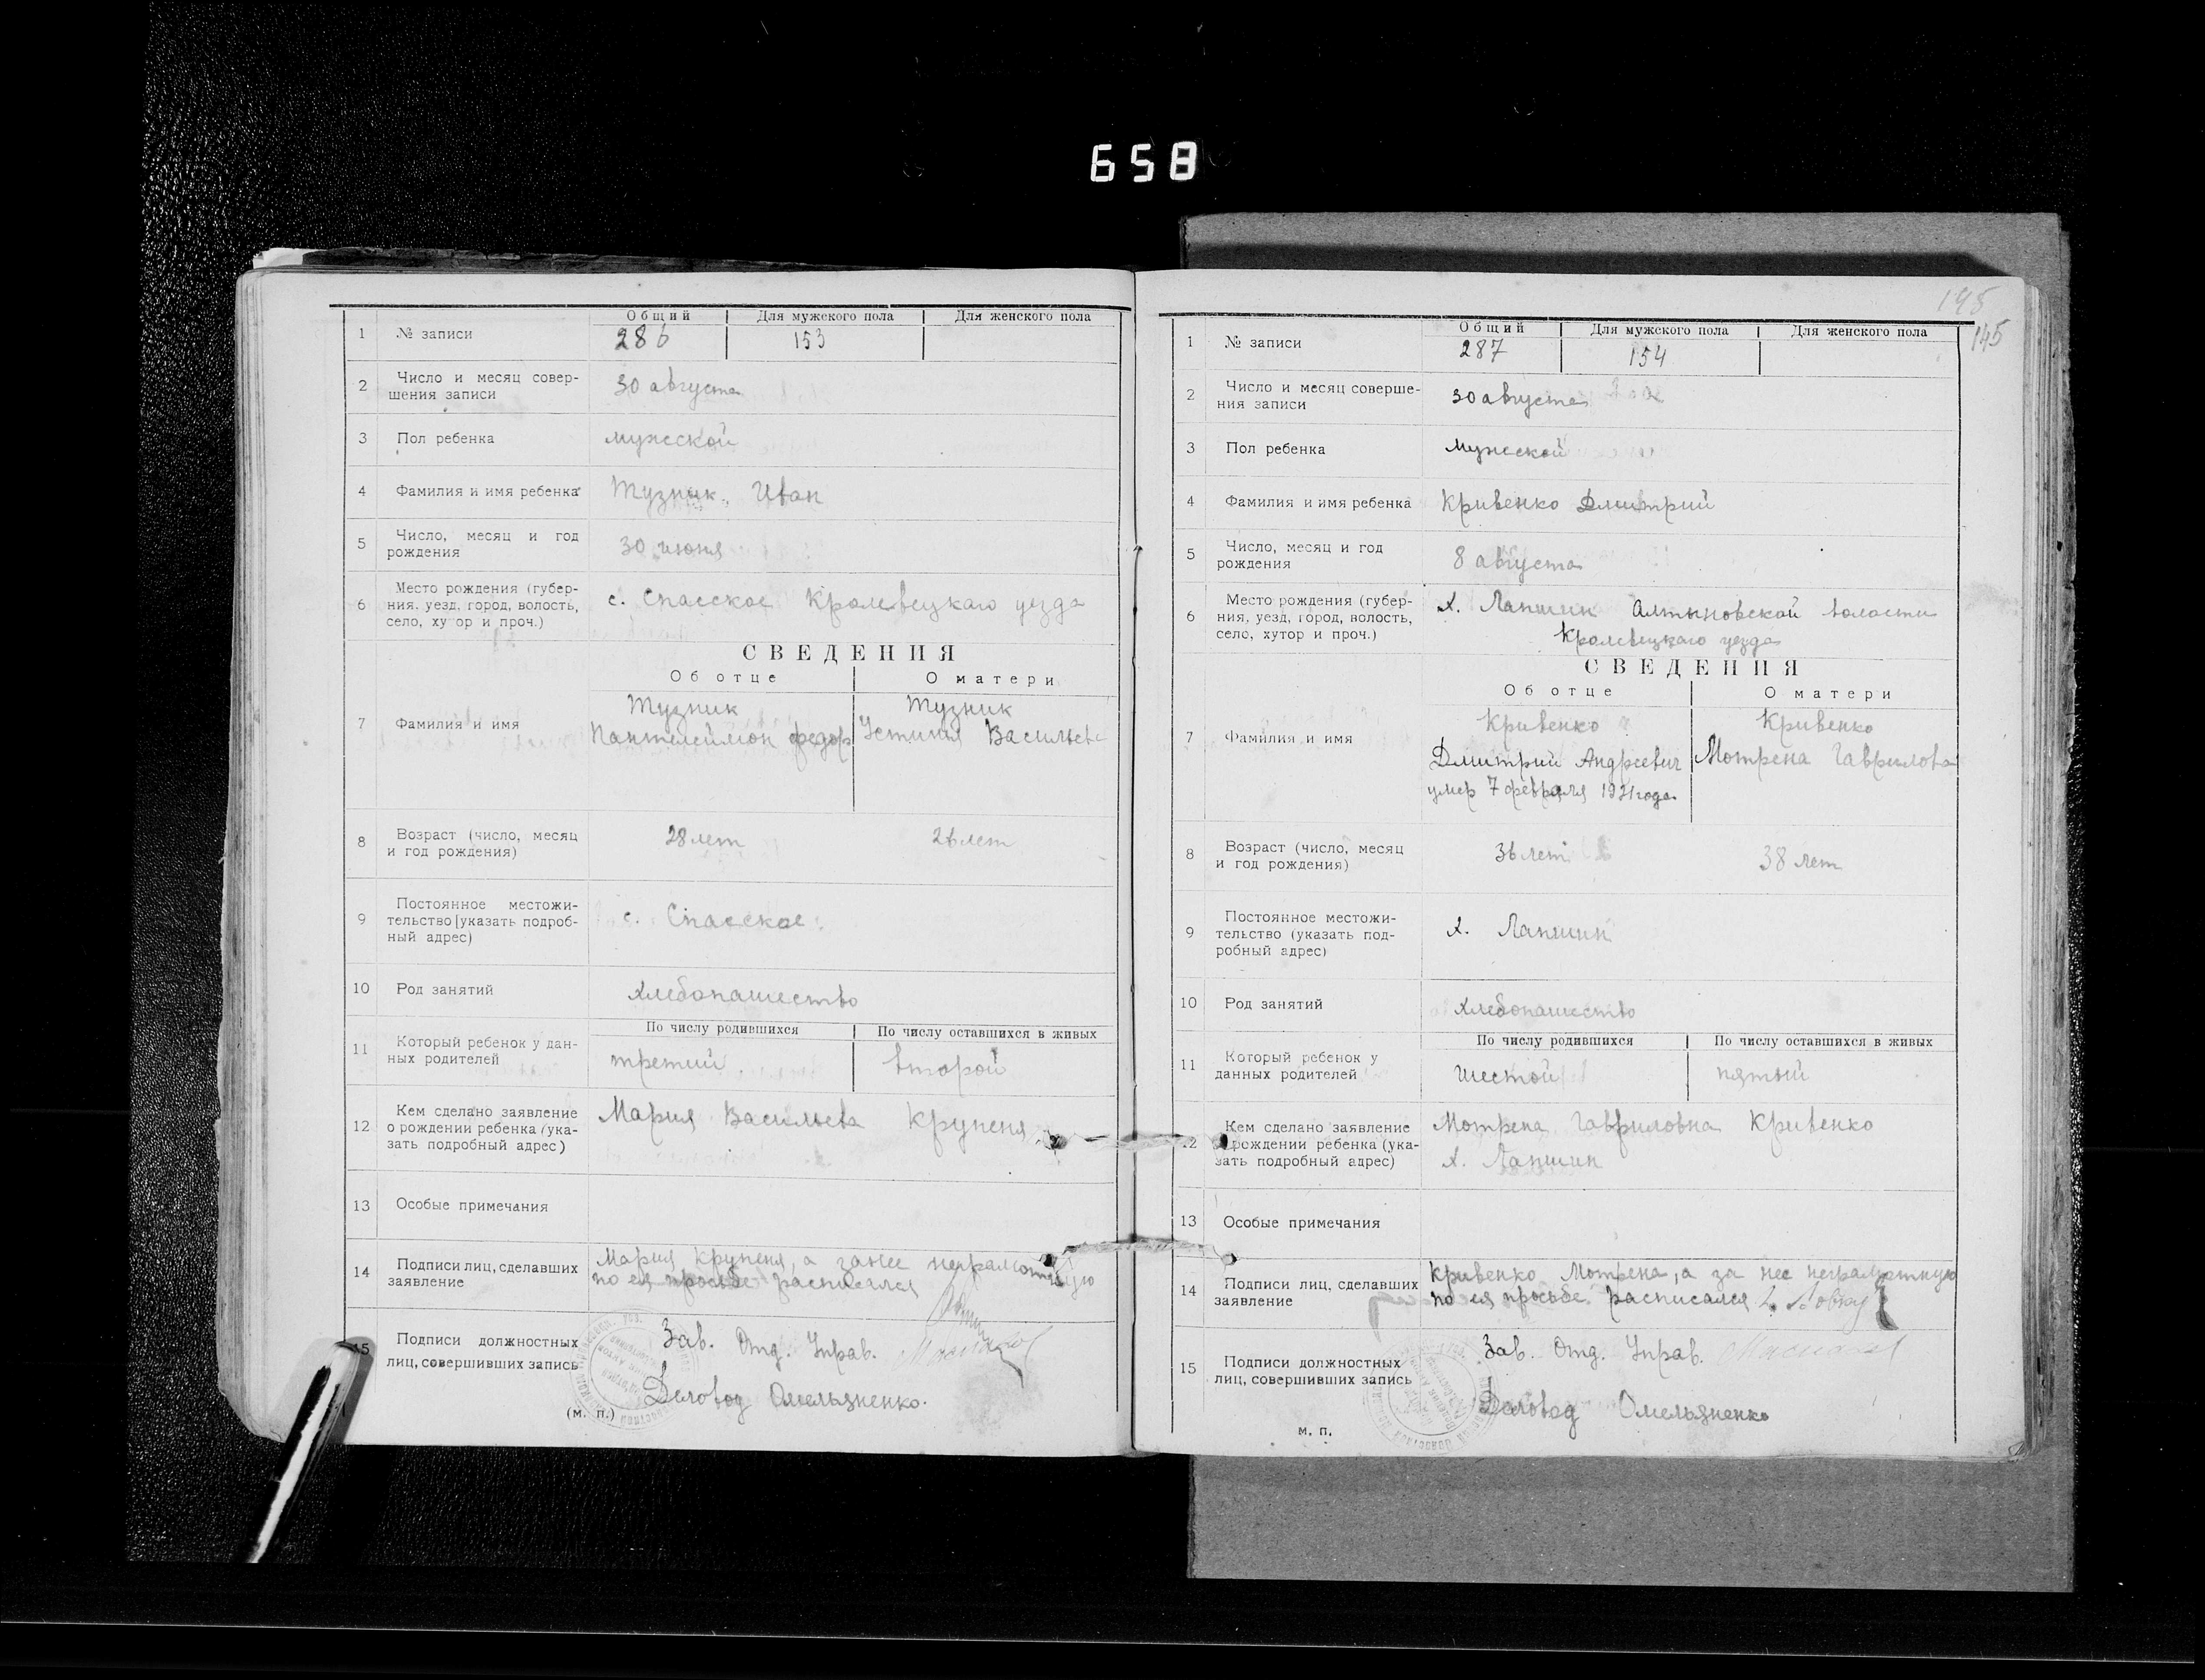 658
Общий Для мужского пола Для женского пола
1 № записи 286 153
2 Число и месяц совер-
шения записи 30 августа
3 Пол ребенка мужской
4 Фамилия и имя ребенка Тузник Иван
5 Число, месяц и год
рождения 30 июня
6 Место рождения (губер-
ния, уезд, город, волость,
село, хутор и проч.) с. Спасское Кролевецкаго уезда
СВЕДЕНИЯ
Об отце О матери
7 Фамилия и имя Тузник Тузник
Пантелеймон федор Устиния Васильева
8 Возраст (число, месяц
и год рождения) 28 лет 26 лет
9 Постоянное местожи-
тельство (указать подроб-
ный адрес) с. Спасское
10 Род занятий хлебопашество
По числу родившихся По числу оставшихся в живых
11 Который ребенок у дан-
ных родителей третий второй
12 Кем сделано заявление
о рождении ребенка (ука-
зать подробный адрес) Мария Васильева Крупеня
13 Особые примечания
14 Подписи лиц, сделавших
заявление Мария Крупеня, а за нее неграмотную
по ея просьбе расписался
15 Подписи должностных
лиц, совершивших запись Зав. Отд. Управ.
Деловод Омельяненко.
(м. п.)
195
145
Общий Для мужского пола Для женского пола
1 № записи 287 154
2 Число и месяц соверше-
ния записи 30 августа
3 Пол ребенка мужской
4 Фамилия и имя ребенка Кривенко Дмитрий
5 Число, месяц и год
рождения 8 августа
6 Место рождения (губер-
ния, уезд, город, волость,
село, хутор и проч.) х. Лапшин Алтыновской воласти
Кролевецкаго уезда
СВЕДЕНИЯ
Об отце О матери
7 Фамилия и имя Кривенко Кривенко
Дмитрий Андреевич Мотрена Гаврилова
умер 7 февраля 1921 года
8 Возраст (число, месяц
и год рождения) 36 лет 38 лет
9 Постоянное местожи-
тельство (указать под-
робный адрес) х. Лапшин
10 Род занятий хлебопашество
По числу родившихся По числу оставшихся в живых
11 Который ребенок у
данных родителей шестой пятый
12 Кем сделано заявление
о рождении ребенка (ука-
зать подробный адрес) Мотрена Гавриловна Кривенко
х. Лапшин
13 Особые примечания
14 Подписи лиц, сделавших
заявление Кривенко Мотрена, а за нее неграмотную
по ея просьбе расписался
15 Подписи должностных
лиц, совершивших запись Зав. Отд. Управ.
Деловод Омельяненко
м. п.